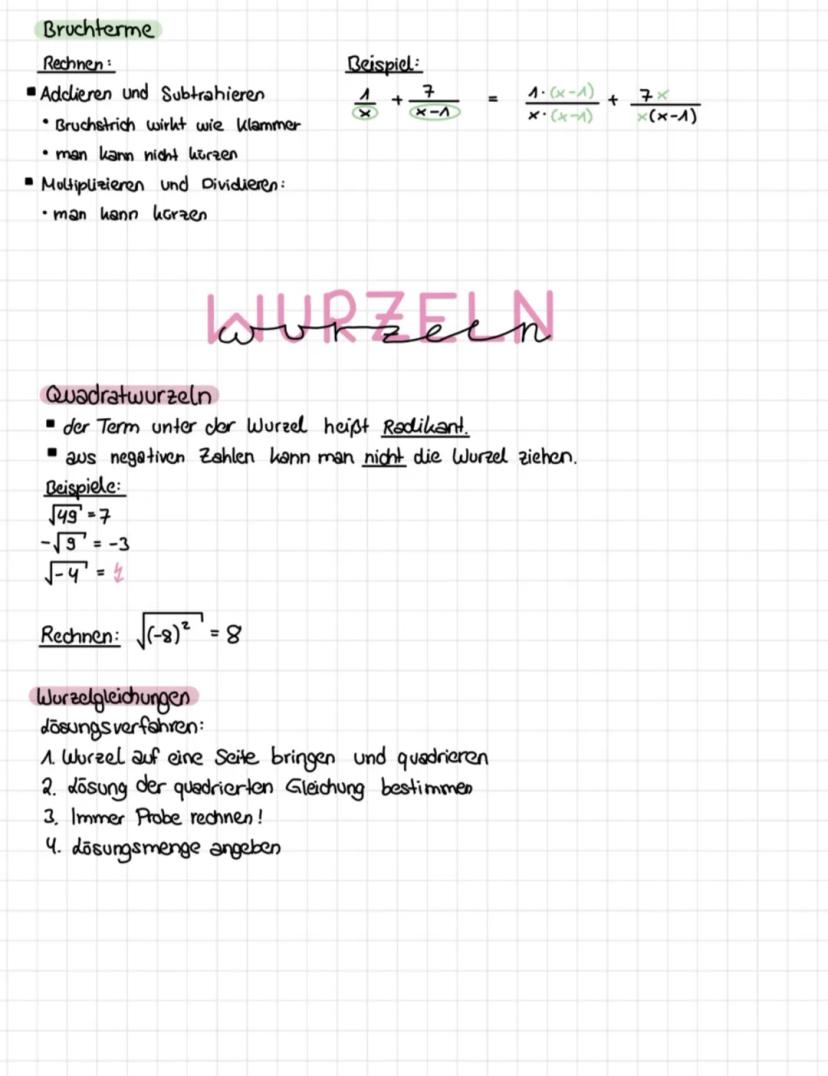 Bruchterme
Rechnen: Beispiel:
▪ Addieren und Subtrahieren
1/x + 7/(x-1) = 1·(x-1)/x·(x-1) + 7x/x(x-1)
• Bruchstrich wirkt wie Klammer
• man kann nicht kürzen
▪ Multiplizieren und Dividieren:
• man kann kürzen
WURZELN
wurzeln
Quadratwurzeln
▪ der Term unter der Wurzel heißt Radikant.
▪ aus negativen Zahlen kann man nicht die Wurzel ziehen.
Beispiele:
√49 = 7
-√9 = -3
√-4 = ↯
Rechnen: √(-8)² = 8
Wurzelgleichungen
Lösungsverfahren:
1. Wurzel auf eine Seite bringen und quadrieren
2. Lösung der quadrierten Gleichung bestimmen
3. Immer Probe rechnen!
4. Lösungsmenge angeben